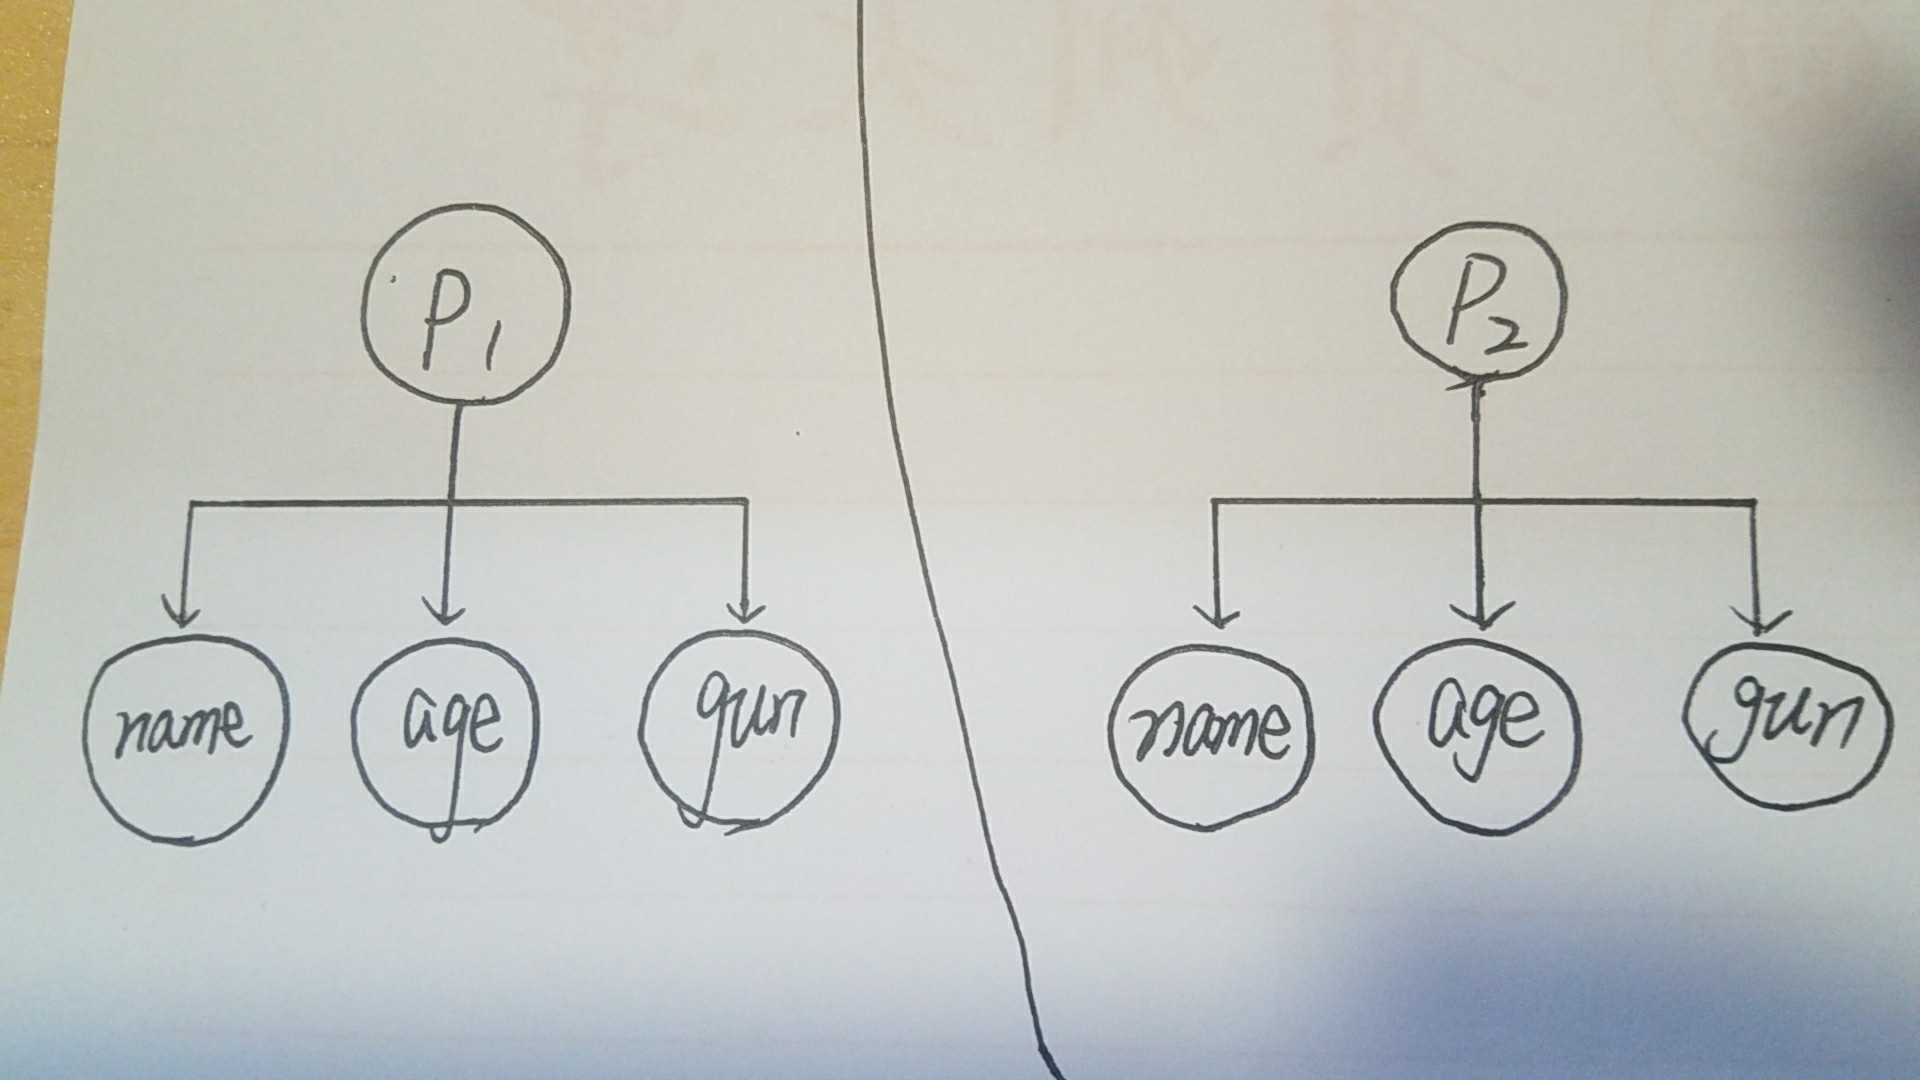 P1
name age gun
P2
name age gun